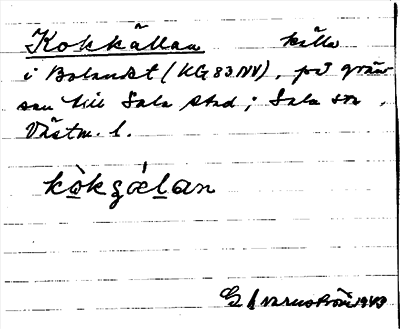 Kokkällan källa
i Bolandet (KG 83 NV), på gräns
sen till Sala stad; Sala sn,
Västm. l.
kòkʒǽlan
G 1943